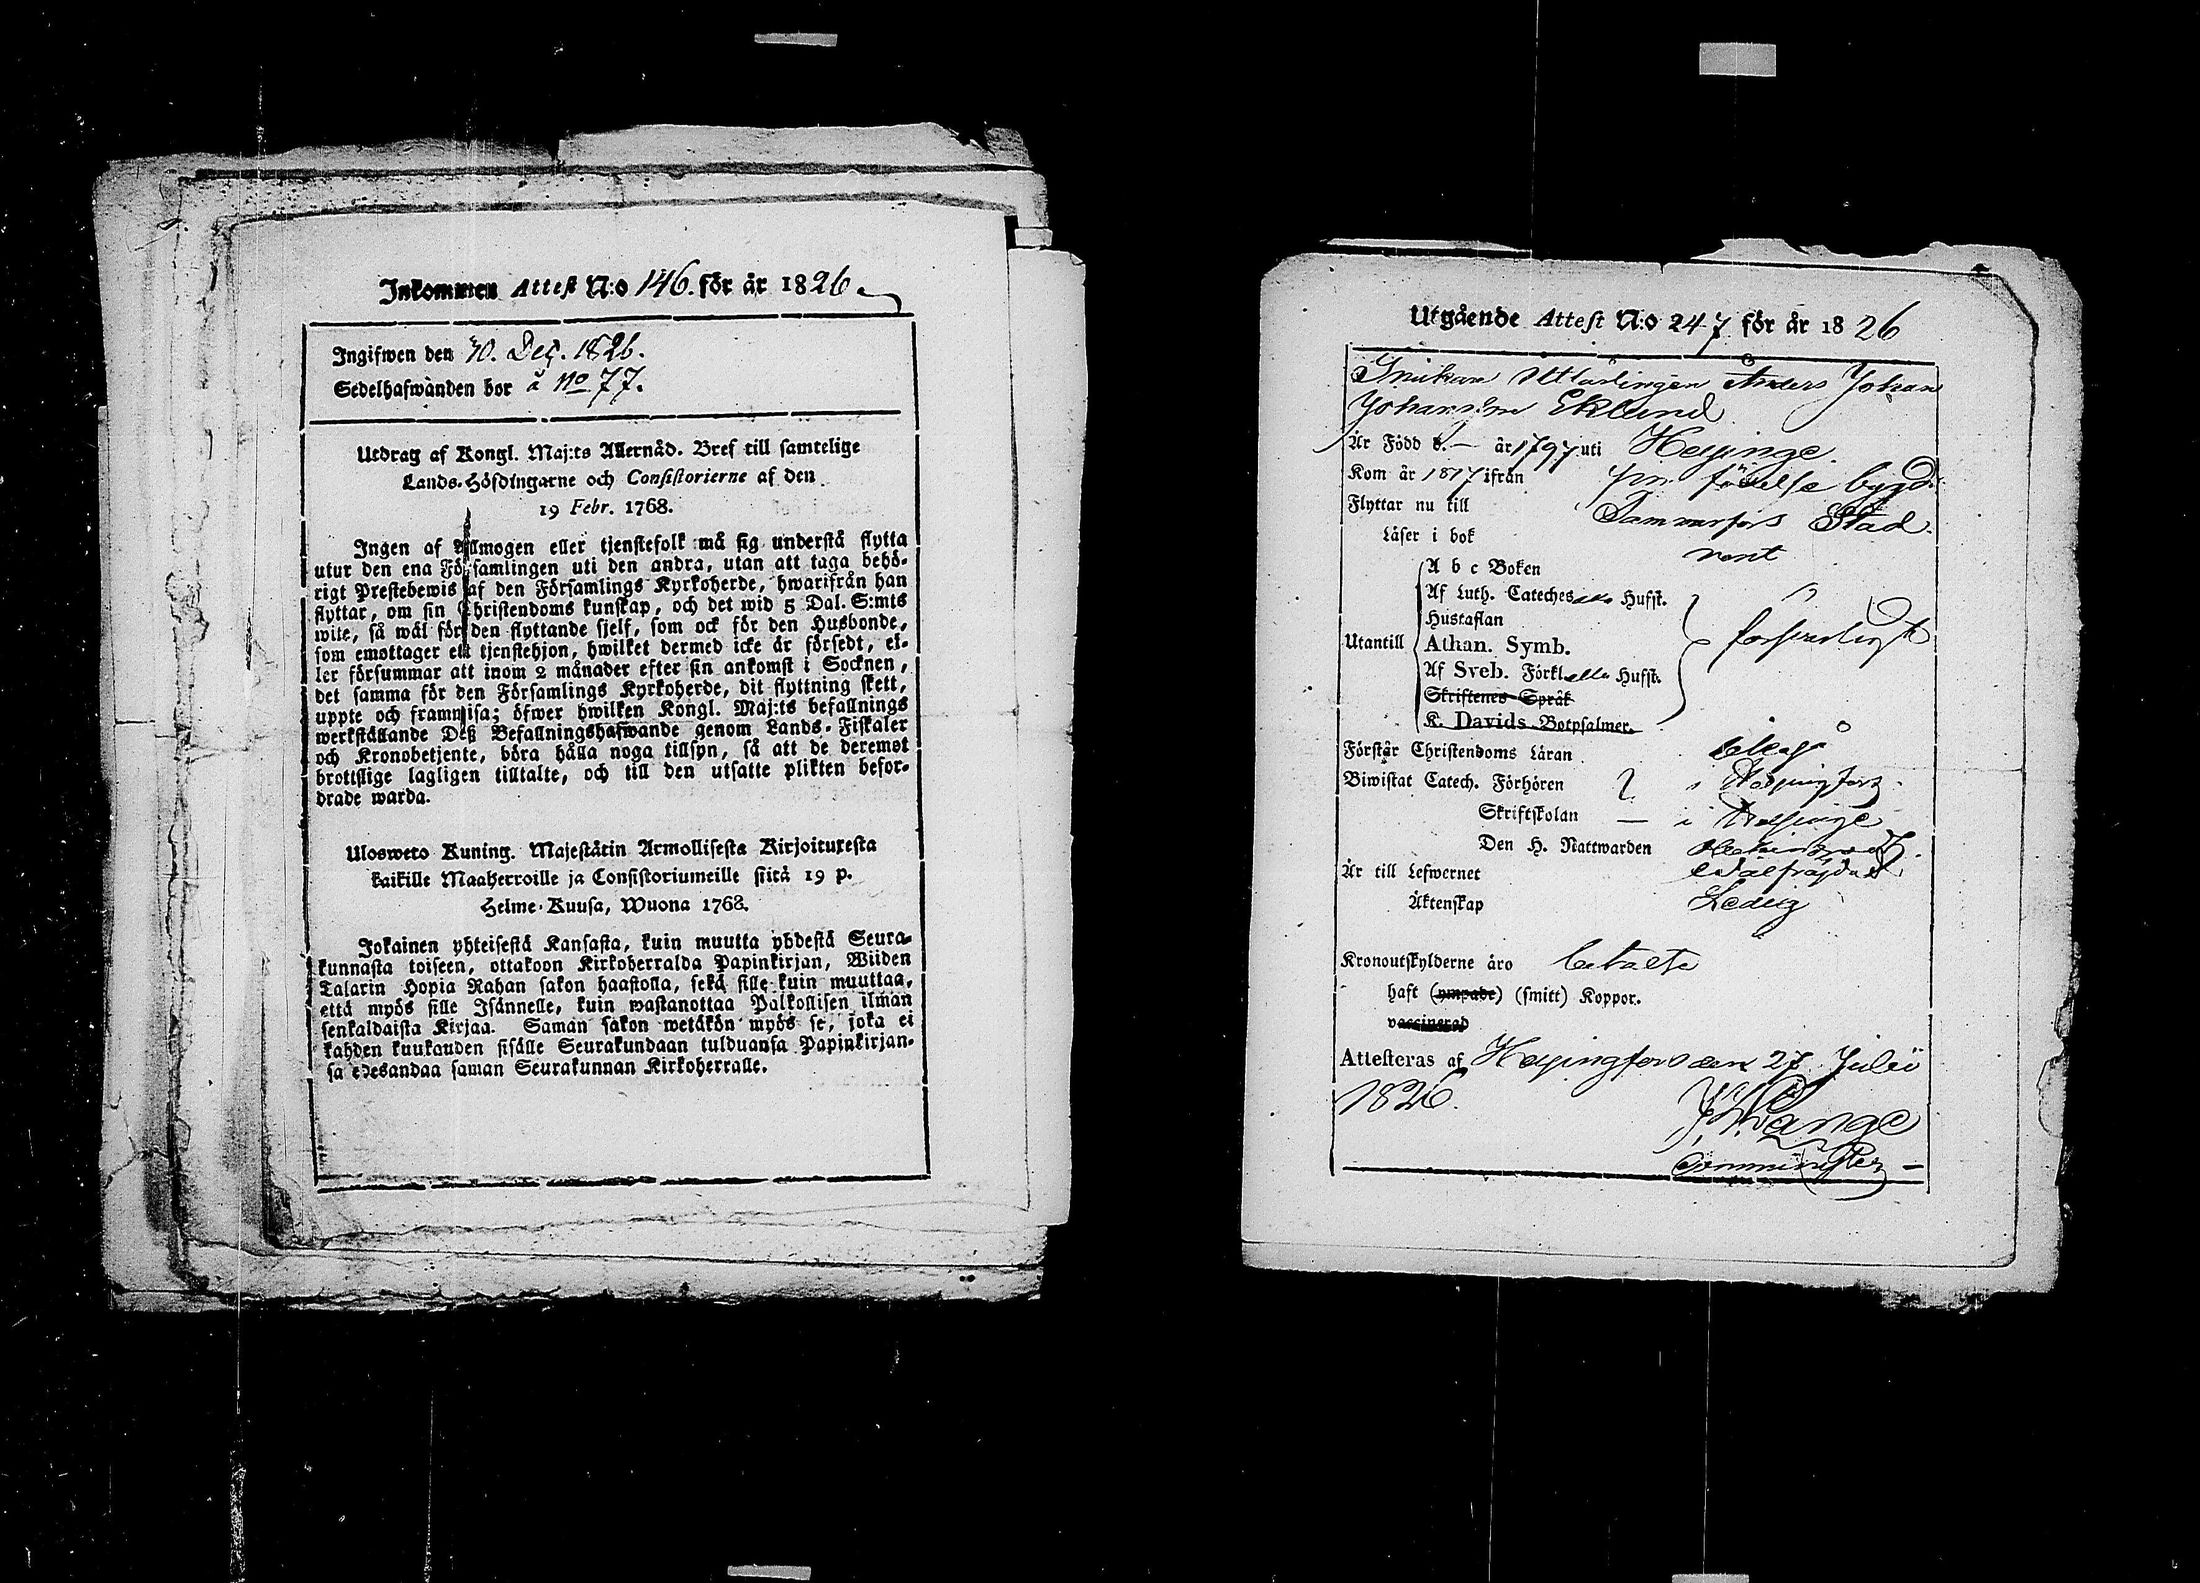 Inkommen Attest N:o 146. för år 1826.
Ingifwen den 30. Dec. 1826.
Sedelhafwanden bor å No 77.
Utdrag af Kongl. Maj:ts Allernåd. Bref till samtelige
Lands-Höfdingarne och Consistorierne af den
19 Febr. 1768.
Ingen af Allmogen eller tjenstefolk må sig understå flytta
utur den ena Församlingen uti den andra, utan att taga behö-
rigt Prestebewis af den Församlings Kyrkoherde, hwarifrån han
flyttar, om sin Christendoms kunskap, och det wid 5 Dal. S:mts
wite, så wäl för den flyttande sjelf, som ock för den Husbonde,
som emottager ett tjenstehjon, hwilket dermed icke är försedt, el-
ler försummar att inom 2 månader efter sin ankomst i Socknen,
det samma för den Församlings Kyrkoherde, dit flyttning skett,
uppte och framwisa; öfwer hwilken Kongl. Maj:ts befallnings
werkställande Deß Befallningshafwande genom Lands-Fiskaler
och Kronobetjente, böra hålla noga tillsyn, så att de deremot
brottslige lagligen tilltalte, och till den utsatte plikten befor-
drade warda.
Ulosweto Kuning. Majestätin Armollisesta Kirjoituxesta
kaikille Maaherroille ja Consistoriumeille siitä 19 p.
Helme-Kuusa, Wuona 1768.
Jokainen yhteisestä Kansasta, kuin muutta yhdestä Seura-
kunnasta toiseen, ottakoon Kirkoherralda Papinkirjan, Wiiden
Talarin Hopia Rahan sakon haastolla, sekä sille kuin muuttaa,
että myös sille Isännelle, kuin wastanottaa Palkollisen ilman
senkaldaista Kirjaa. Saman sakon wetäkön myös se, joka ei
kahden kuukauden sisälle Seurakundaan tulduansa Papinkirjan-
sa edesandaa saman Seurakunnan Kirkoherralle.
Utgående Attest N:o 247 för år 1826
Snikare Utlärlingen Anders Johan
Johansson Eklund
Är Född d. — år 1797 uti Helsinge.
Kom år 1817 ifrån sin födelse bygd.
Flyttar nu till Tammerfors Stad.
Läser i bok rent
A b c Boken
Af Luth. Cateches Hufst.
Hustaflan
Utantill Athan. Symb. försvarligt
Af Sveb. Förkl. Hufst.
Skriftenes Språk
K. Davids Botpsalmer.
Förstår Christendoms Läran
Biwistat Catech. Förhören i Helsingfors.
Skriftskolan — i Helsinge
Den H. Nattwarden
Är till Lefwernet wälfräjdad
Äktenskap Ledig
Kronoutskylderne äro betalte
haft (ympade) (smitt) Koppor.
vaccinerad
Attesteras af Helsingfors den 27 Julii
1826.
Wånge
Comminister